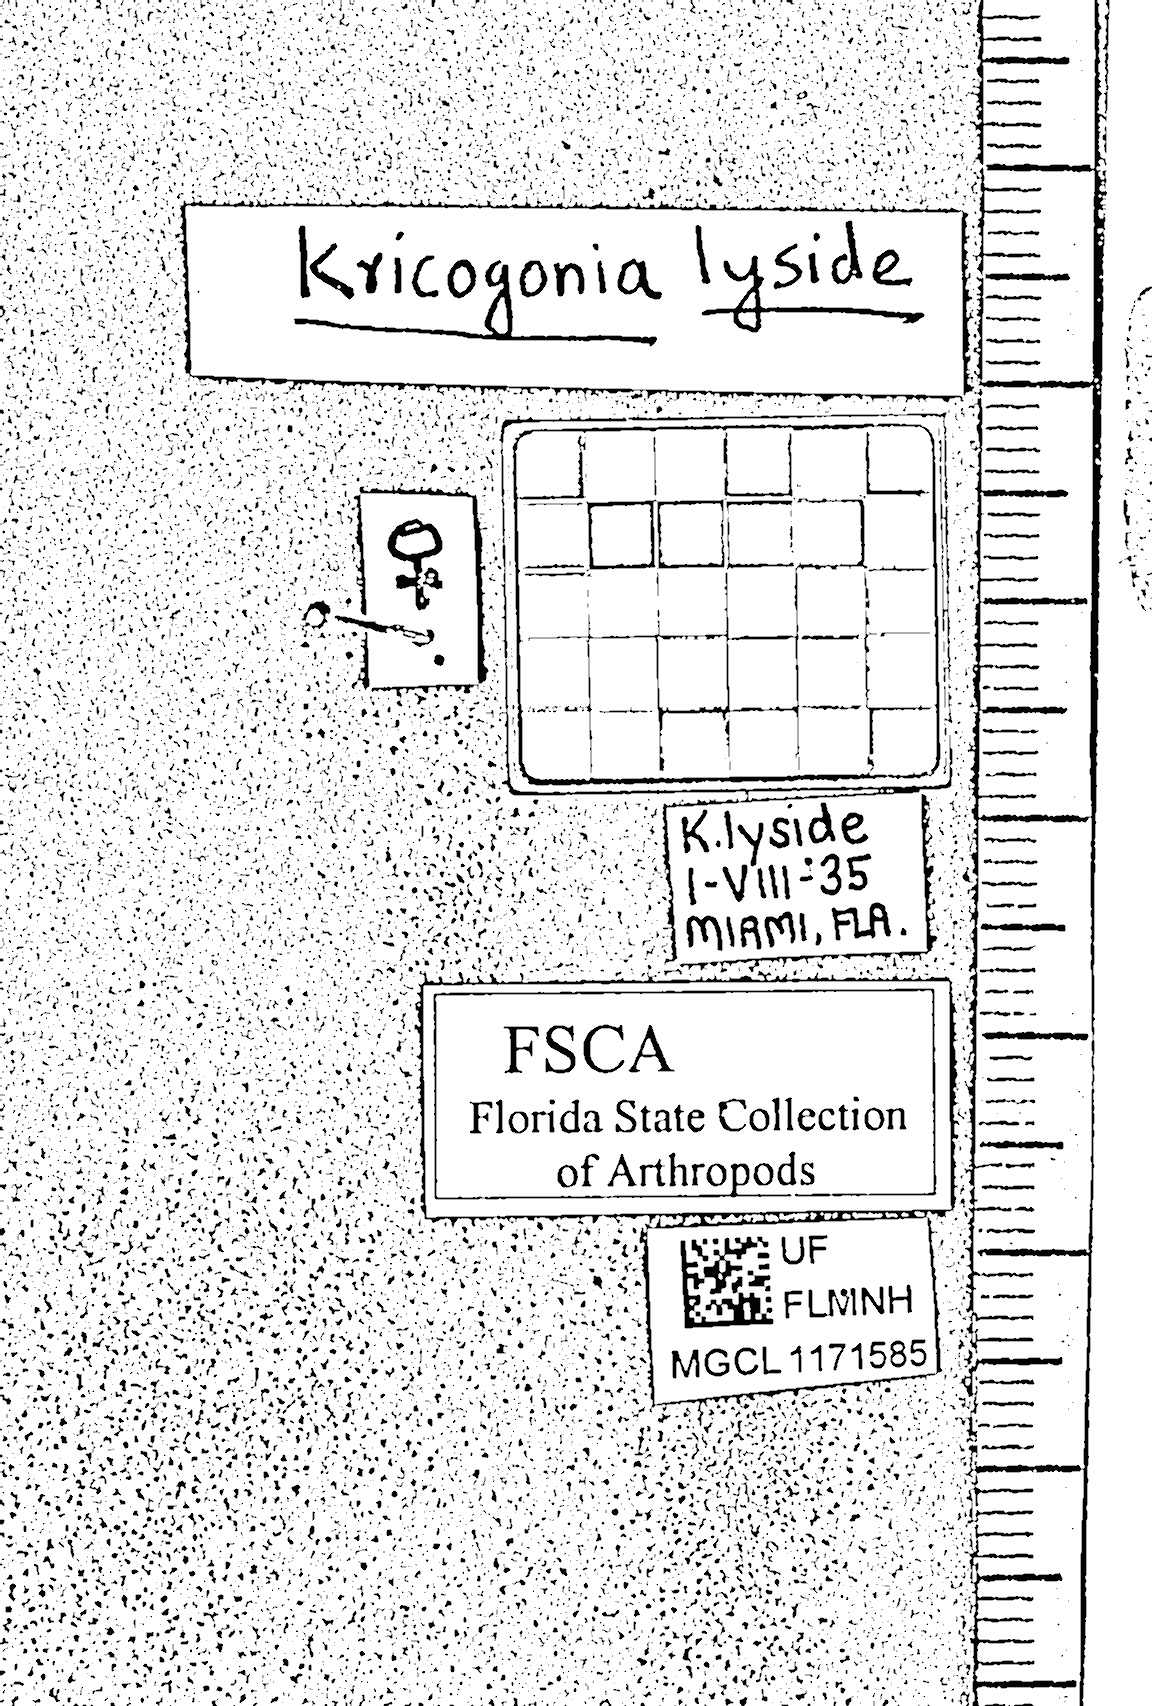 Kricogonia lyside
♀
K. lyside
1-VIII-35
MIAMI, FLA.
FSCA
Florida State Collection
of Arthropods
UF
FLMNH
MGCL 1171585